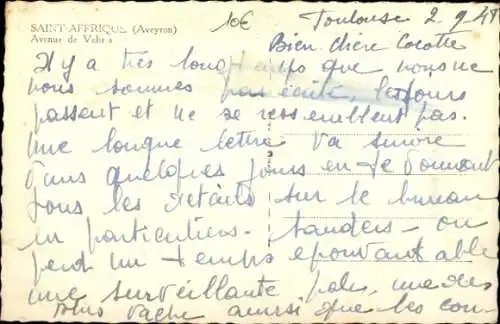 SAINT-AFFRIQUE (Aveyron)
Avenue de Vabres
10€
Toulouse 2.9.41
Bien chère Cocotte
Il y a très longtemps que nous ne
nous sommes pas écrit, les jours
passent et ne se ressemblent pas.
Une longue lettre va suivre
dans quelques jours en te donnant
tous les détails sur le bureau
en particuliers. on
perd un temps épouvantable
une surveillante une des
plus vache ainsi que les con-